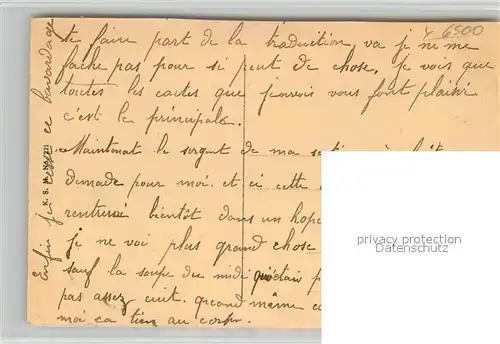 te faire part de la traduction, va je ne me
fache pas pour si peut de chose, je vois que
toutes les cartes que j'envois vous font plaisir
c'est le principale.
Maintenat le sergent de ma
demade pour moi. et ci cette
rentrerai bientôt dans un hop
je ne voi plus grand chose
sauf la soupe du midi qu'était p
pas assez cuit. quand même c
moi ca tien au corps.
Enfin je cesse ce bavardage
6500
privacy protection
Datenschutz